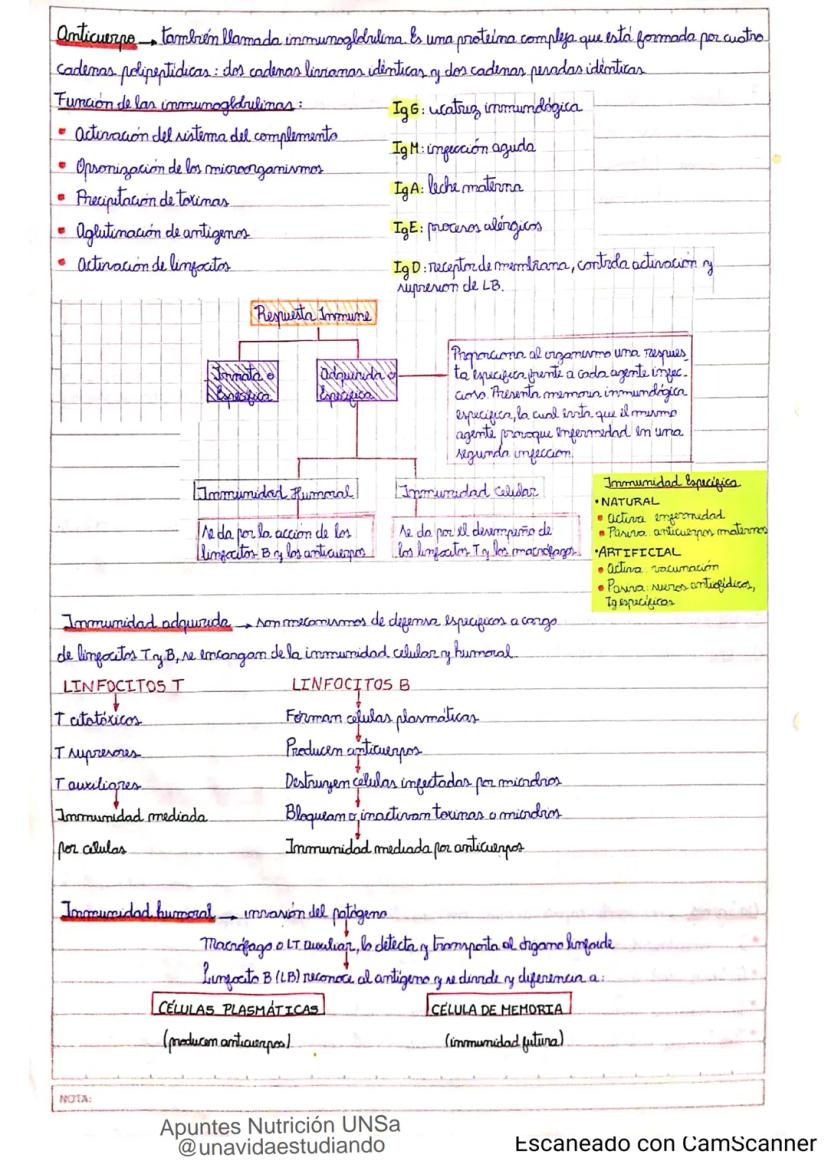 Anticuerpo → también llamada inmunoglobulina. Es una proteína compleja que está formada por cuatro
cadenas polipeptídicas: dos cadenas livianas idénticas y dos cadenas pesadas idénticas
Función de las inmunoglobulinas:
• Activación del sistema del complemento
• Opsonización de los microorganismos
• Precipitación de toxinas
• Aglutinación de antígenos
• Activación de linfocitos
IgG: cicatriz inmunológica
IgM: infección aguda
IgA: leche materna
IgE: procesos alérgicos
IgD: receptor de membrana, controla activación y
supresion de LB.
Respuesta Inmune
Innata o
Específica
Adquirida o
Específica
Proporciona al organismo una respues
ta específica frente a cada agente infec-
cioso. Presenta memoria inmunológica
específica, la cual evita que el mismo
agente provoque enfermedad en una
segunda infeccion.
Inmunidad Humoral
Inmunidad Celular
Se da por la acción de los
linfocitos B y los anticuerpos
Se da por el desempeño de
los linfocitos T y los macrófagos.
Inmunidad Específica
• NATURAL
• Activa enfermedad
• Pasiva anticuerpos maternos
• ARTIFICIAL
• Activa: vacunación
• Pasiva: sueros antiofídicos,
Ig específicas
Inmunidad adquirida → son mecanismos de defensa específicos a cargo
de linfocitos T y B, se encargan de la inmunidad celular y humoral.
LINFOCITOS T
T citotóxicos
T supresores
T auxiliares
Inmunidad mediada
por células
LINFOCITOS B
Forman celulas plasmáticas
Producen anticuerpos
Destruyen celulas infectadas por microbios
Bloquean o inactivan toxinas o microbios
Inmunidad mediada por anticuerpos
Inmunidad humoral → invasión del patógeno
Macrófago o LT auxiliar, lo detecta y transporta al órgano linfoide
Linfocito B (LB) reconoce al antígeno y se divide y diferencia a:
CÉLULAS PLASMÁTICAS
(producen anticuerpos)
CÉLULA DE MEMORIA
(inmunidad futura)
NOTA:
Apuntes Nutrición UNSa
@unavidaestudiando
Escaneado con CamScanner